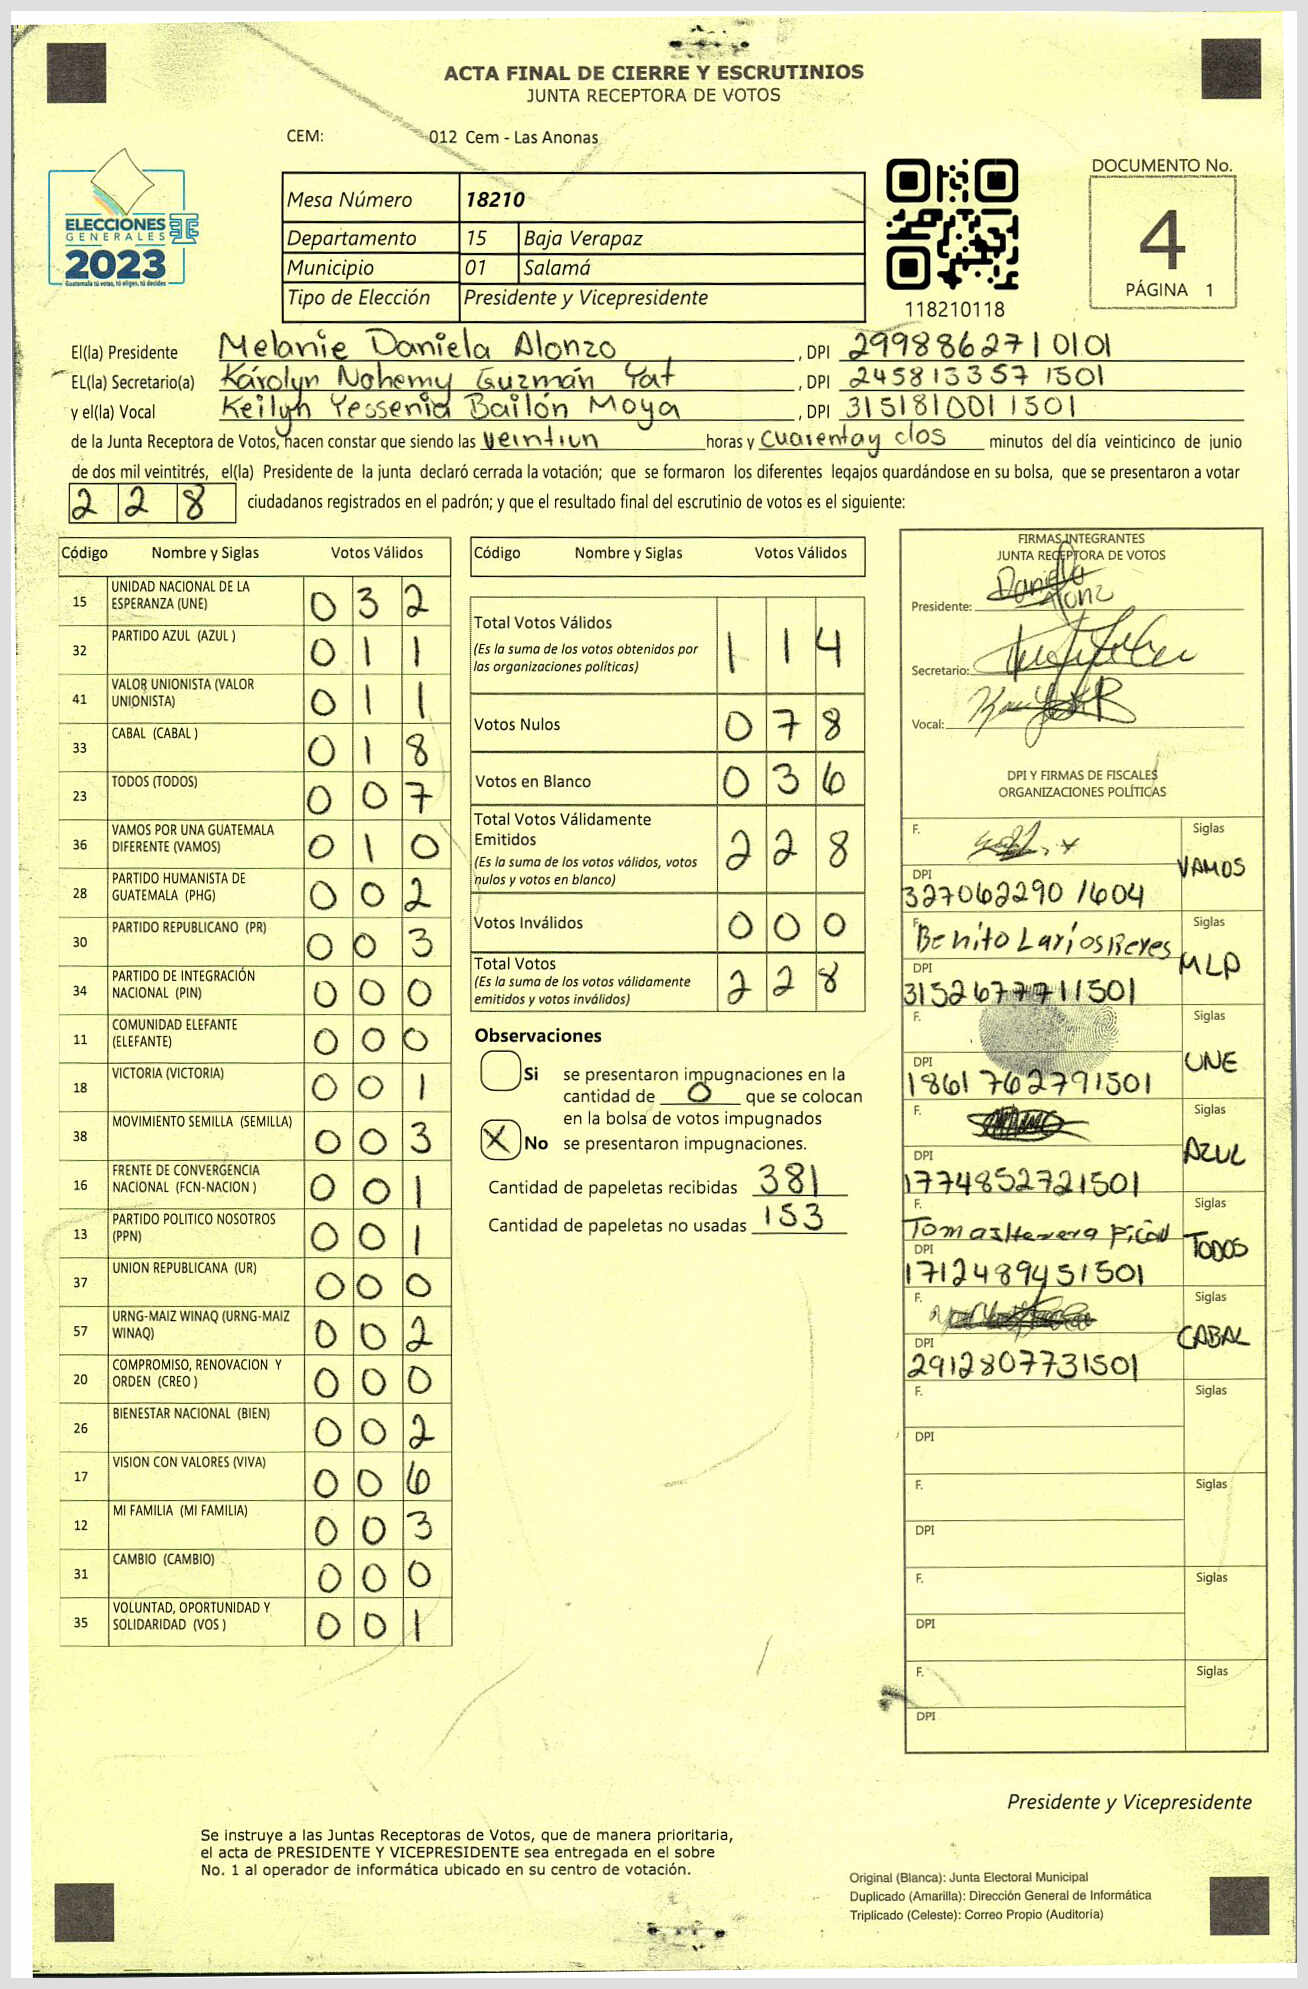 ACTA FINAL DE CIERRE Y ESCRUTINIOS
JUNTA RECEPTORA DE VOTOS
CEM: 012 Cem - Las Anonas
ELECCIONES
GENERALES
2023
Guatemala tú votas, tú eliges, tú decides
Mesa Número 18210
Departamento 15 Baja Verapaz
Municipio 01 Salamá
Tipo de Elección Presidente y Vicepresidente
118210118
DOCUMENTO No.
4
PÁGINA 1
El(la) Presidente Melanie Daniela Alonzo , DPI 2998862710101
EL(la) Secretario(a) Károlyn Nohemy Guzmán Yat , DPI 2458133571501
y el(la) Vocal Keilyn Yessenia Bailón Moya , DPI 3151810011501
de la Junta Receptora de Votos, hacen constar que siendo las veintiun horas y cuarentay dos minutos del día veinticinco de junio
de dos mil veintitrés, el(la) Presidente de la junta declaró cerrada la votación; que se formaron los diferentes legajos guardándose en su bolsa, que se presentaron a votar
228 ciudadanos registrados en el padrón; y que el resultado final del escrutinio de votos es el siguiente:
Código Nombre y Siglas Votos Válidos
15 UNIDAD NACIONAL DE LA
ESPERANZA (UNE) 032
32 PARTIDO AZUL (AZUL ) 011
41 VALOR UNIONISTA (VALOR
UNIONISTA) 011
33 CABAL (CABAL ) 018
23 TODOS (TODOS) 007
36 VAMOS POR UNA GUATEMALA
DIFERENTE (VAMOS) 010
28 PARTIDO HUMANISTA DE
GUATEMALA (PHG) 002
30 PARTIDO REPUBLICANO (PR) 003
34 PARTIDO DE INTEGRACIÓN
NACIONAL (PIN) 000
11 COMUNIDAD ELEFANTE
(ELEFANTE) 000
18 VICTORIA (VICTORIA) 001
38 MOVIMIENTO SEMILLA (SEMILLA) 003
16 FRENTE DE CONVERGENCIA
NACIONAL (FCN-NACION ) 001
13 PARTIDO POLITICO NOSOTROS
(PPN) 001
37 UNION REPUBLICANA (UR) 000
57 URNG-MAIZ WINAQ (URNG-MAIZ
WINAQ) 002
20 COMPROMISO, RENOVACION Y
ORDEN (CREO ) 000
26 BIENESTAR NACIONAL (BIEN) 002
17 VISION CON VALORES (VIVA) 006
12 MI FAMILIA (MI FAMILIA) 003
31 CAMBIO (CAMBIO) 000
35 VOLUNTAD, OPORTUNIDAD Y
SOLIDARIDAD (VOS ) 001
Código Nombre y Siglas Votos Válidos
Total Votos Válidos 114
(Es la suma de los votos obtenidos por
las organizaciones políticas)
Votos Nulos 078
Votos en Blanco 036
Total Votos Válidamente
Emitidos 228
(Es la suma de los votos válidos, votos
nulos y votos en blanco)
Votos Inválidos 000
Total Votos 228
(Es la suma de los votos válidamente
emitidos y votos inválidos)
Observaciones
Si se presentaron impugnaciones en la
cantidad de 0 que se colocan
en la bolsa de votos impugnados
X No se presentaron impugnaciones.
Cantidad de papeletas recibidas 381
Cantidad de papeletas no usadas 153
FIRMAS INTEGRANTES
JUNTA RECEPTORA DE VOTOS
Presidente: Daniela
Alonz
Secretario:
Vocal:
DPI Y FIRMAS DE FISCALES
ORGANIZACIONES POLÍTICAS
F. Siglas
VAMOS
DPI
327062290 1604
F. Benito Larios Reyes Siglas
MLP
DPI
3152677711501
F. Siglas
UNE
DPI
1861762791501
F. Siglas
AZUL
DPI
1774852721501
F. Tomas Herrera Siglas
TODOS
DPI
1712489451501
F. Siglas
CABAL
DPI
2912807731501
F. Siglas
DPI
F. Siglas
DPI
F. Siglas
DPI
F. Siglas
DPI
Presidente y Vicepresidente
Se instruye a las Juntas Receptoras de Votos, que de manera prioritaria,
el acta de PRESIDENTE Y VICEPRESIDENTE sea entregada en el sobre
No. 1 al operador de informática ubicado en su centro de votación.
Original (Blanca): Junta Electoral Municipal
Duplicado (Amarilla): Dirección General de Informática
Triplicado (Celeste): Correo Propio (Auditoría)